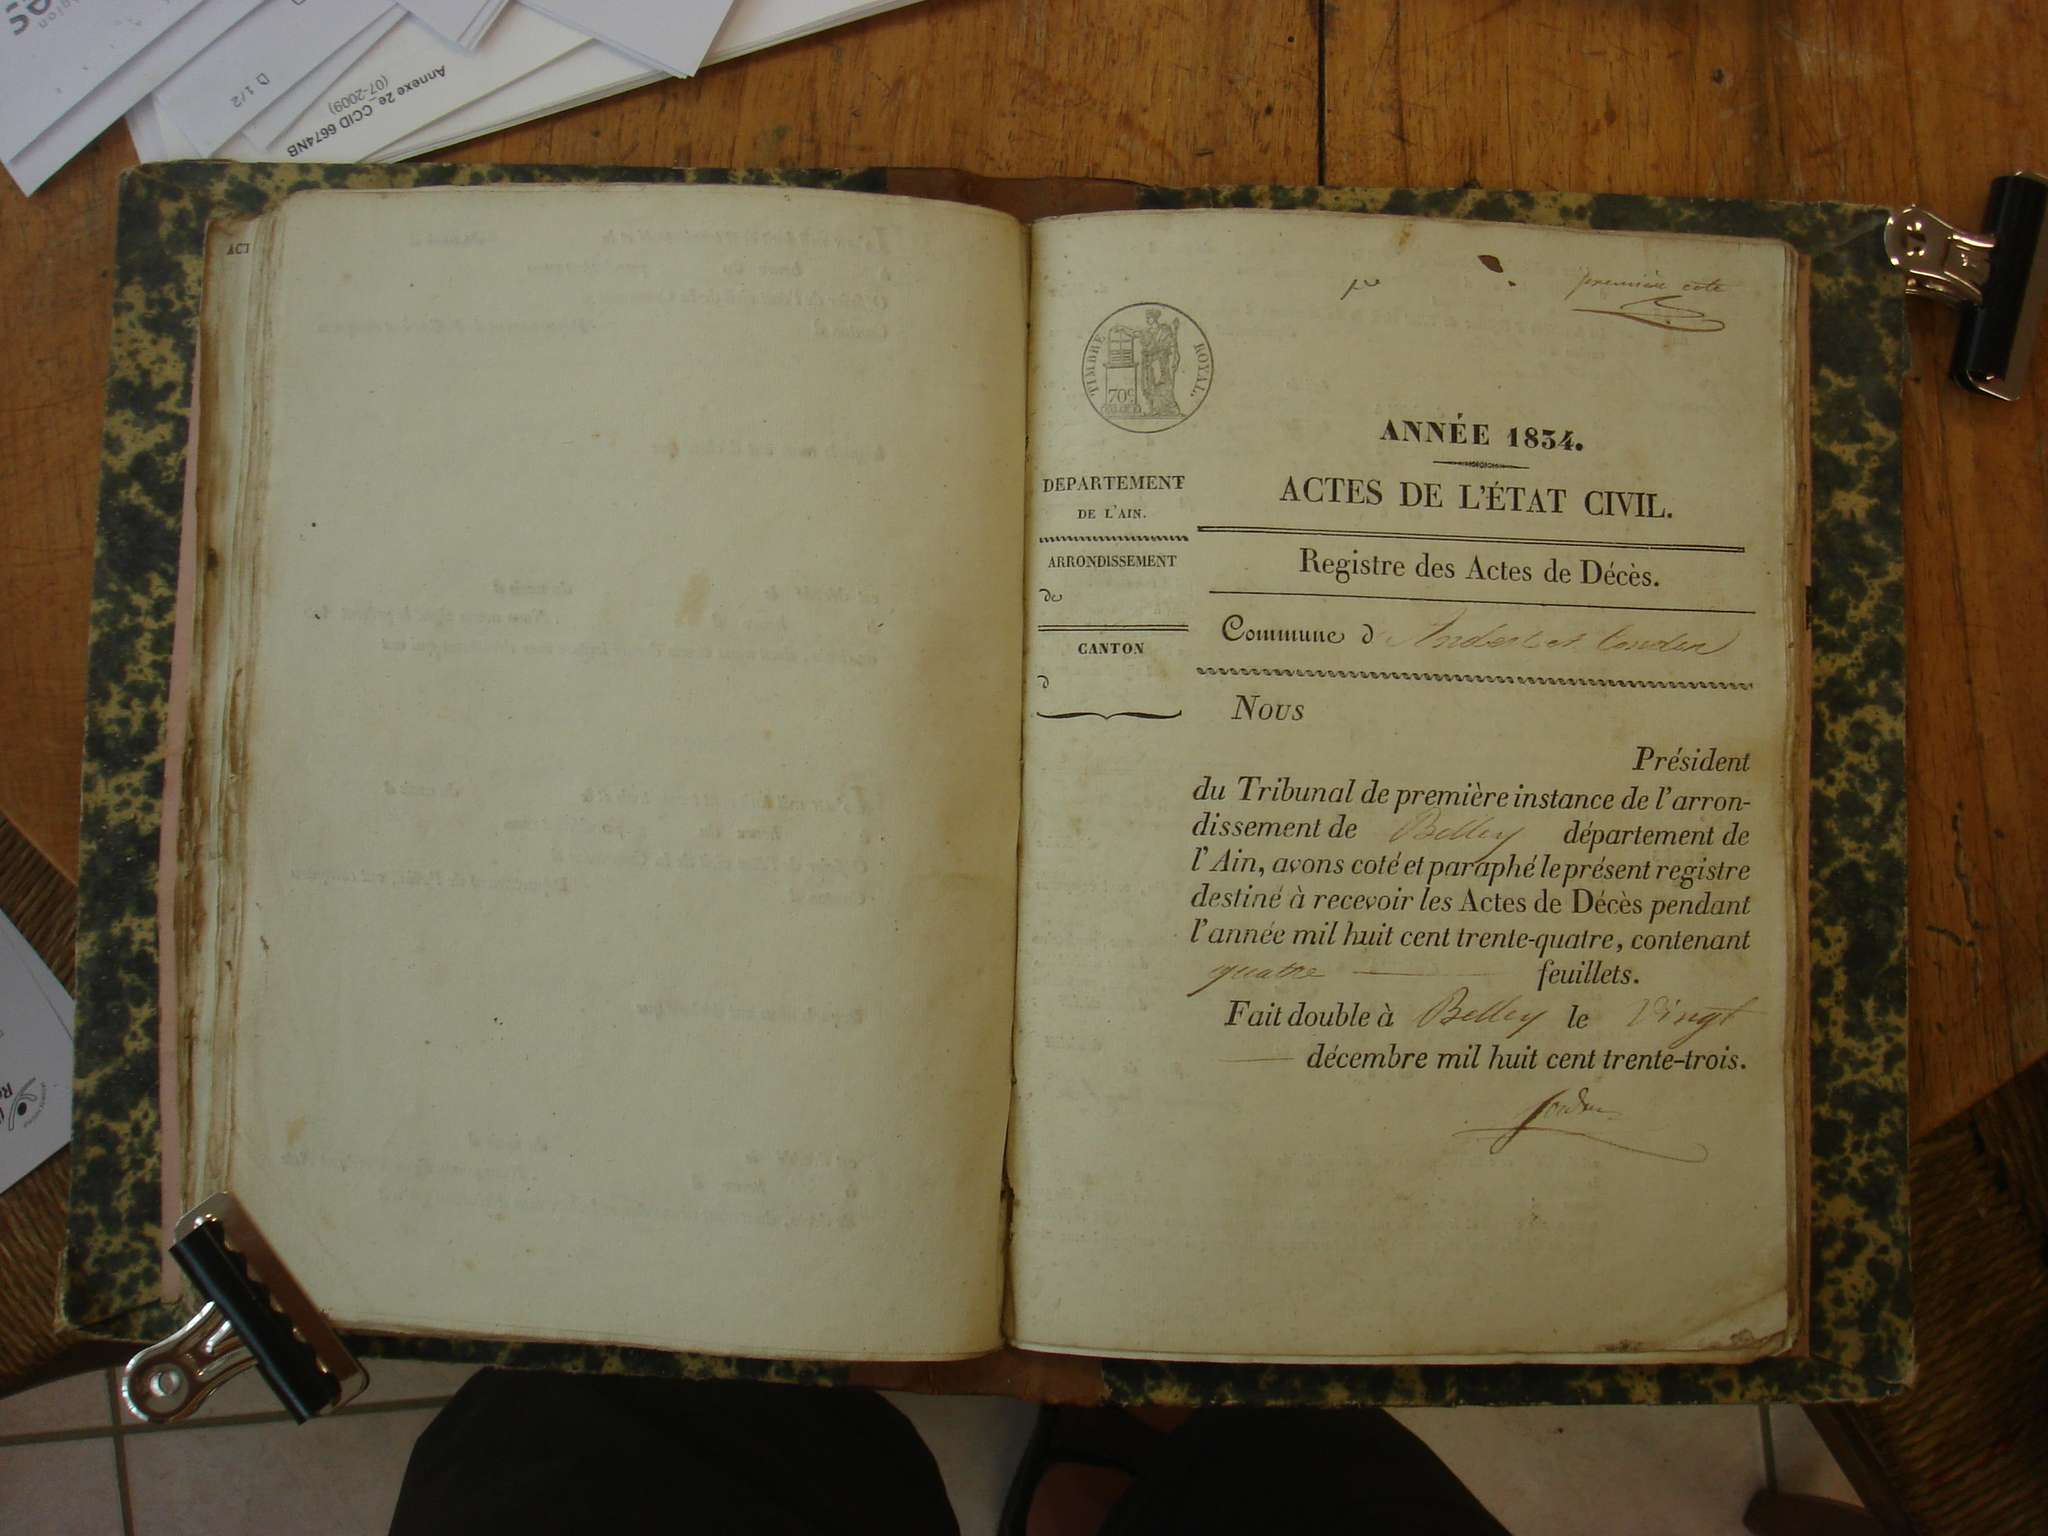 Annexe 2e_CCID 6674NB
(07-2009)
D 1/2
ACT
première cote
TIMBRE ROYAL.
70c
ANNÉE 1834.
ACTES DE L'ÉTAT CIVIL.
DEPARTEMENT
DE L'AIN.
ARRONDISSEMENT
de
CANTON
d
Registre des Actes de Décès.
Commune d'Andert et Condon
Nous
Président
du Tribunal de première instance de l'arron-
dissement de Belley département de
l'Ain, avons coté et paraphé le présent registre
destiné à recevoir les Actes de Décès pendant
l'année mil huit cent trente-quatre, contenant
quatre feuillets.
Fait double à Belley le Vingt
décembre mil huit cent trente-trois.